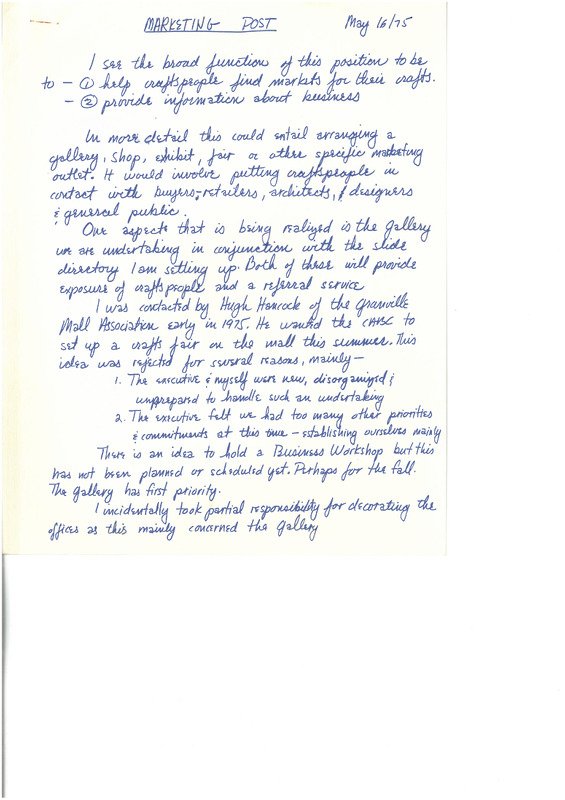 MARKETING POST May 16/75
I see the broad function of this position to be
to - ① help craftspeople find markets for their crafts.
- ② provide information about business
In more detail this could entail arranging a
gallery, shop, exhibit, fair or other specific marketing
outlet. It would involve putting craftspeople in
contact with buyers - retailers, architects, & designers
& general public.
One aspects that is being realized is the gallery
we are undertaking in conjunction with the slide
directory I am setting up. Both of these will provide
exposure of craftspeople and a referral service
I was contacted by Hugh Hancock of the Granville
Mall Association early in 1975. He wanted the CABC to
set up a crafts fair on the mall this summer. This
idea was rejected for several reasons, mainly -
1. The executive & myself were new, disorganized &
unprepared to handle such an undertaking
2. The executive felt we had too many other priorities
& commitments at this time - establishing ourselves mainly
There is an idea to hold a Business Workshop but this
has not been planned or scheduled yet. Perhaps for the fall.
The gallery has first priority.
I incidentally took partial responsibility for decorating the
offices as this mainly concerned the gallery